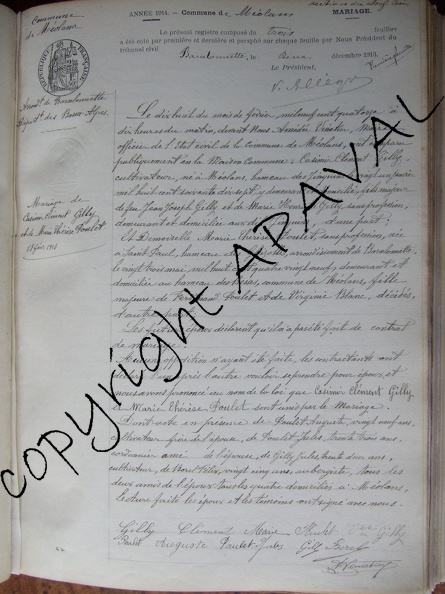 Commune
de Méolans
ANNÉE 1914. — Commune de Méolans
MARIAGE.
Le présent registre composé du trois feuillets
a été coté par première et dernière et paraphé sur chaque feuillet par Nous Président du
tribunal civil Barcelonnette, le deux décembre 1913.
Le Président,
Arrondt de Barcelonnette
Départt des Basses-Alpes
Le dix huit du mois de février mil neuf cent quatorze à
dix heures du matin, devant Nous
officier de l'État civil de la Commune de Méolans, ont comparu
publiquement en la Maison Commune: Casimir Clément Gilly,
cultivateur, né à Méolans, hameau des
mil huit cent soixante dix sept, y demeurant
de feu Jean Joseph Gilly et de Marie sans profession,
demeurant et domiciliée aux d'une part;
Mariage de
Casimir Clément Gilly
et de Marie Thérèse Poulet
Et Demoiselle Marie Thérèse Poulet, sans profession, née
à Saint Paul, hameau arrondissement de Barcelonnette,
le vingt trois mai mil huit cent quatre vingt neuf, demeurant et
domiciliée au hameau des commune de Méolans, fille
majeure de Poulet et de Virginie Blanc, décédés,
d'autre part.
Les futurs époux déclarent qu'il n'a pas été fait de contrat
de mariage.
Aucune opposition n'ayant été faite, les contractants ont
déclaré l'un après l'autre vouloir se prendre pour époux, et
nous avons prononcé au nom de la loi que Casimir Clément Gilly
et Marie Thérèse Poulet sont unis par le Mariage.
Dont acte en présence de Poulet Auguste, vingt neuf ans,
frère de l'épouse, de Poulet Jules, trente trois ans,
cordonnier ami de l'épouse, de Gilly Jules, trente deux ans,
cultivateur, de Borel Félix, vingt cinq ans, aubergiste, tous les
deux amis de l'époux tous les quatre domiciliés à Méolans.
Lecture faite les époux et les témoins ont signé avec nous.
Gilly Clément Marie Poulet Gilly
Poulet Auguste Poulet Jules Borel
copyright APAVAL